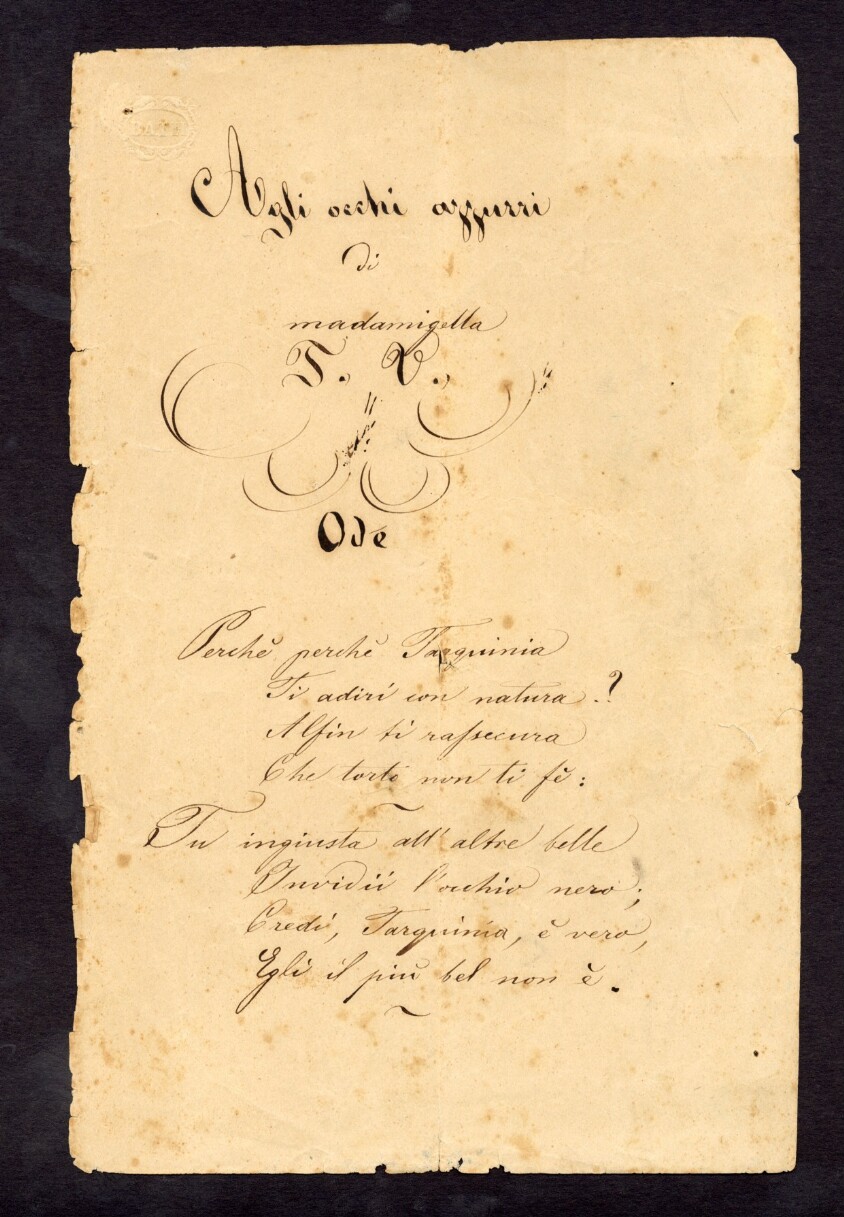 Agli occhi azzurri
di
madamigella
T. V.,
Ode
Perchè perchè Tarquinia
Ti adiri con natura?
Alfin ti rassecura
Che torto non ti fè:
Tu ingiusta all'altre belle
Invidii l'occhio nero;
Credi, Tarquinia, è vero,
Egli il più bel non è.